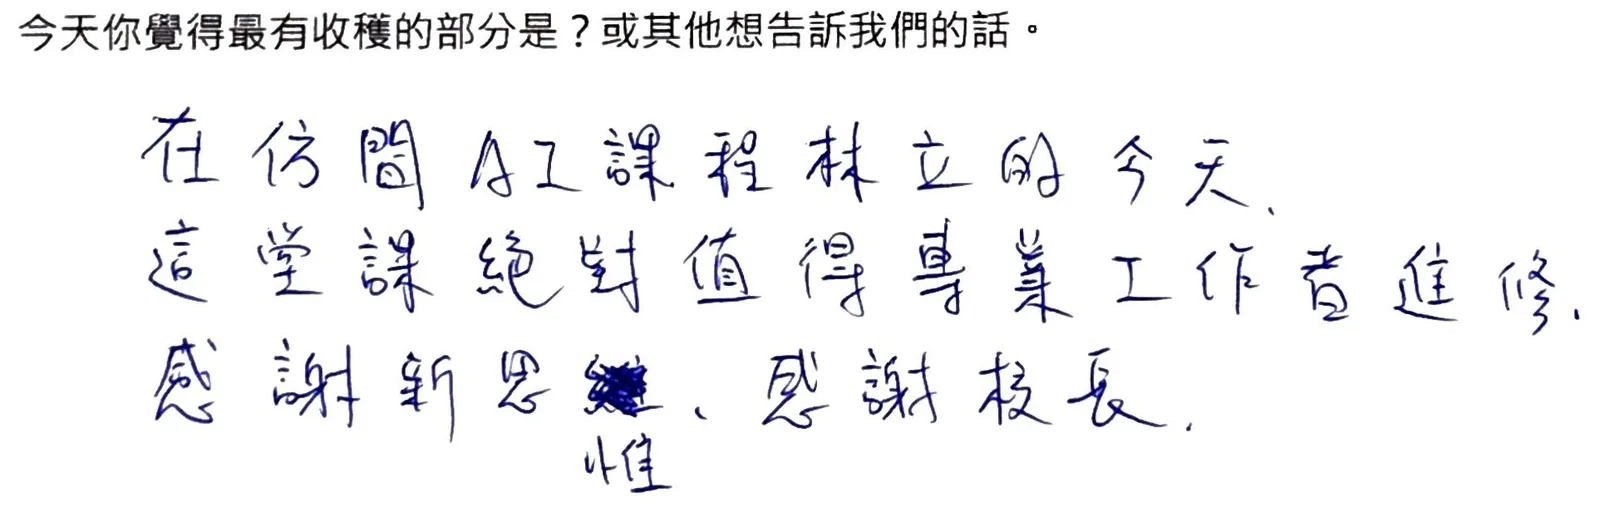 今天你覺得最有收穫的部分是？或其他想告訴我們的話。
在仿間AI課程林立的今天、
這堂課絕對值得專業工作者進修、
感謝新思惟、感謝校長、